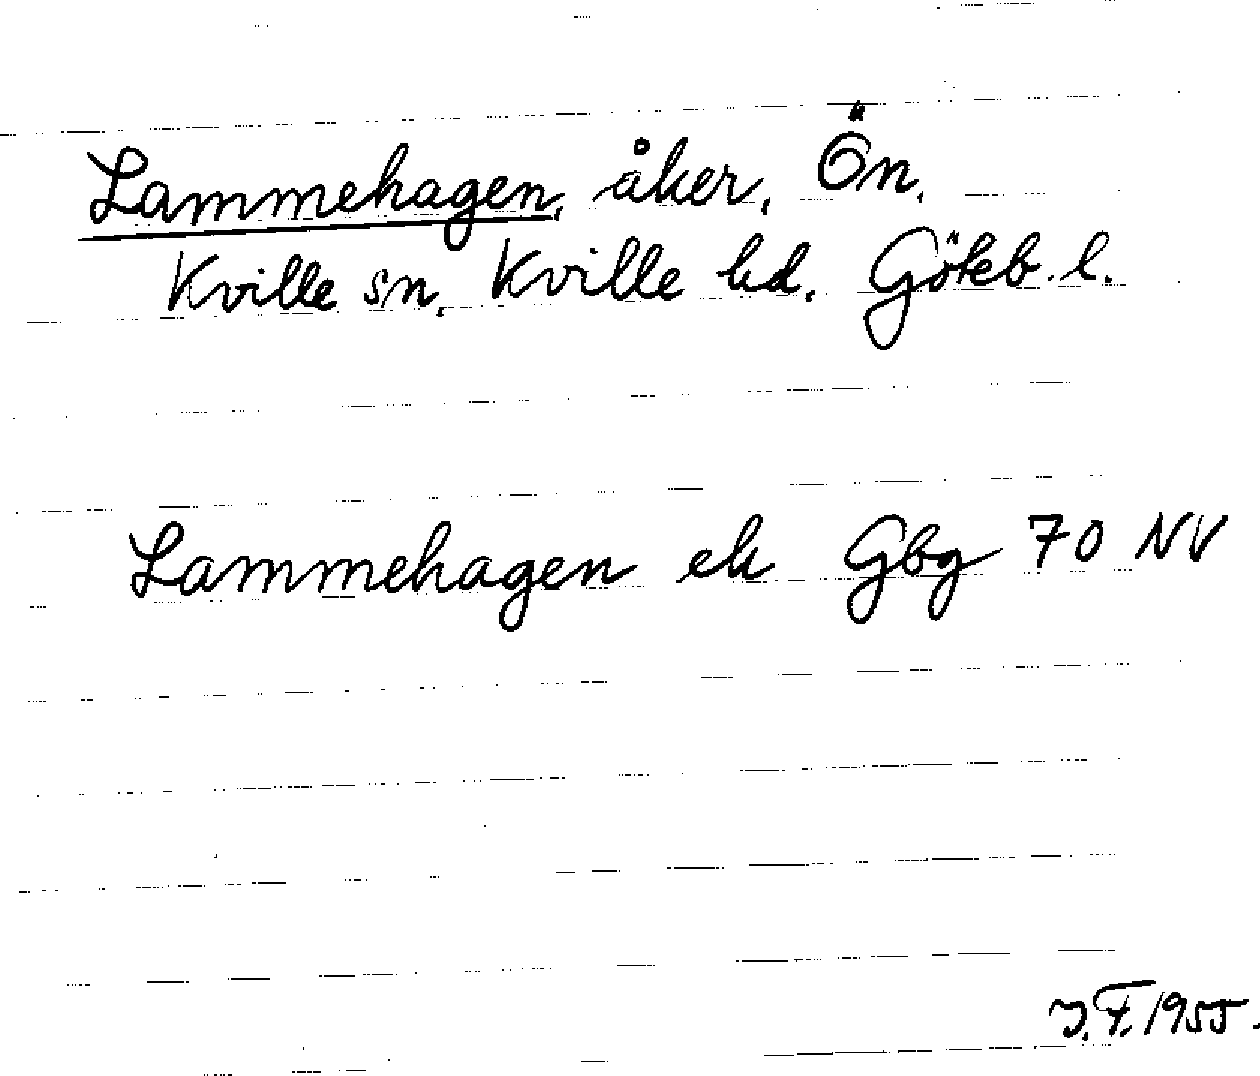 Lammehagen, åker, Ön.
Kville sn, Kville hd. Göteb. l.
Lammehagen ek Gbg 70 NV
J.F. 1955.